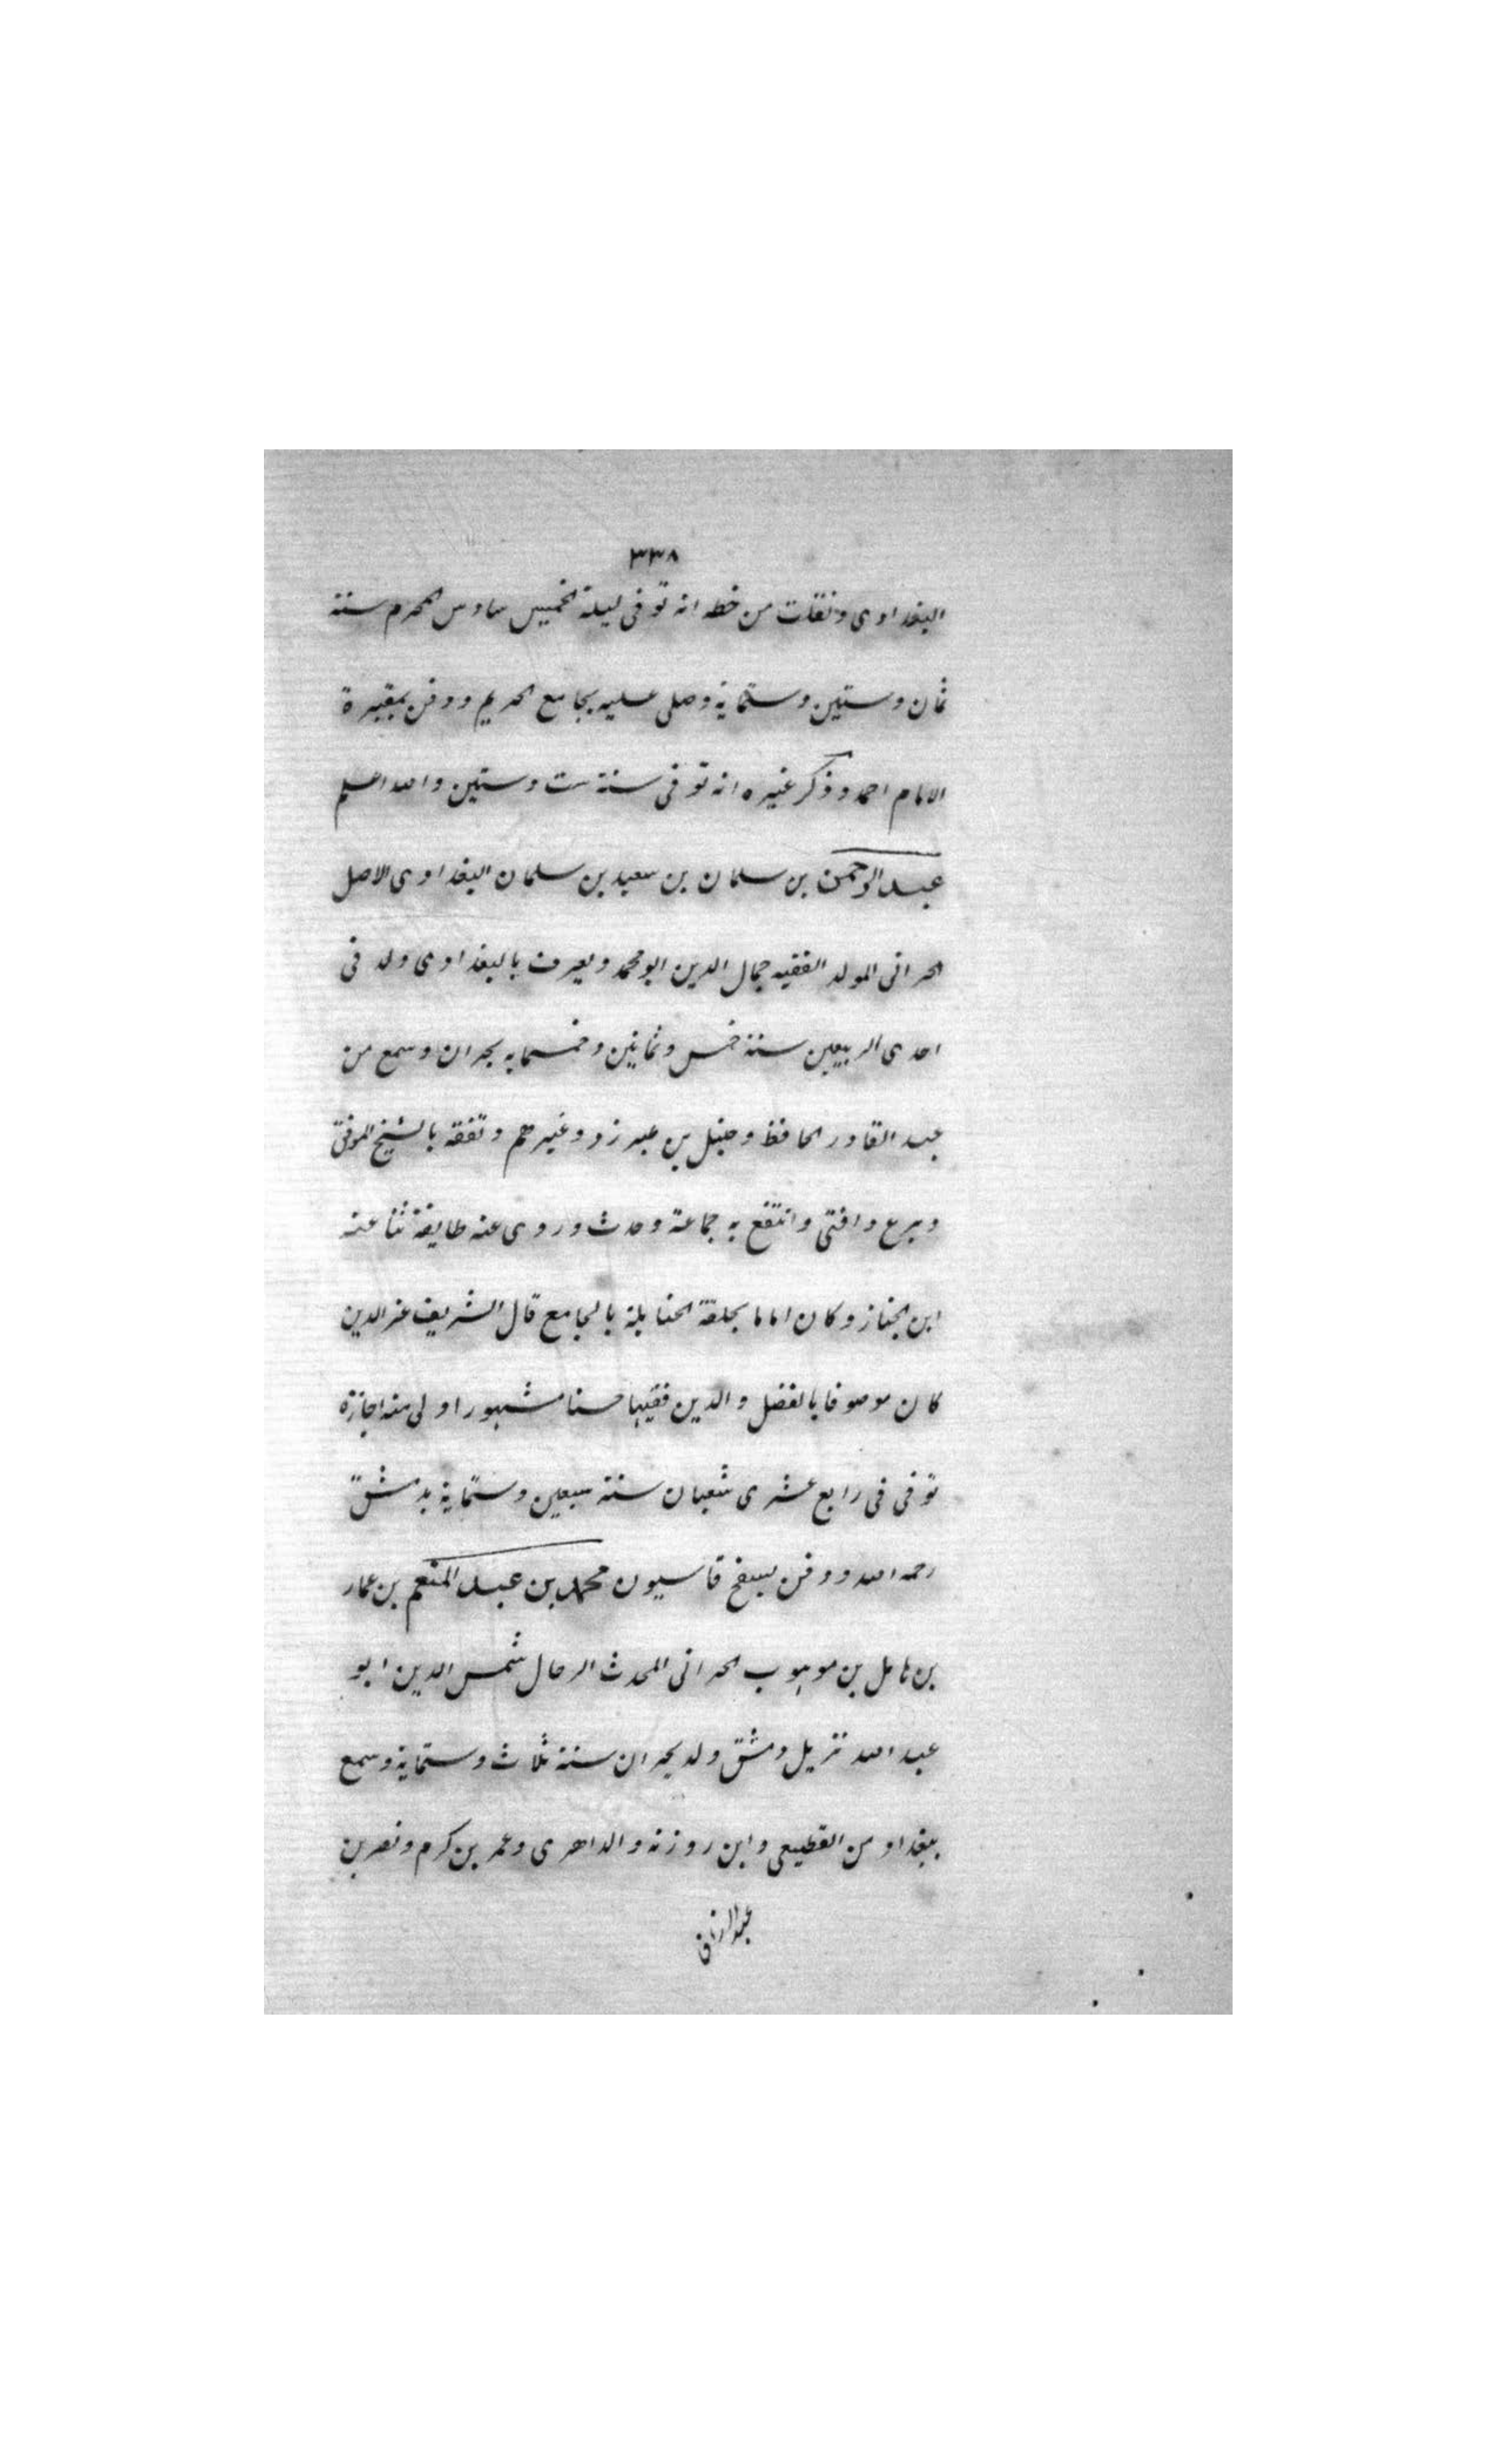 ٣٣٨
البغدادى ونقلت من خطه انه توفى ليلة الخميس سادس المحرم سنة
ثمان وستين وستماية وصلى عليه بجامع الحريم ودفن بمقبرة
الامام احمد وذكر غيره انه توفى سنة ست وستين والله اعلم
عبد الرحمن بن سلمان بن سعيد بن سلمان البغدادى الاصل
الحرانى المولد الفقيه جمال الدين ابو محمد ويعرف بالبغدادى ولد فى
احدى الربيعين سنة خمس وثمانين وخمسمايه بحران وسمع من
عبد القادر الحافظ وحنبل بن طبرزد وغيرهم وتفقه بالشيخ الموفق
وبرع وافتى وانتفع به جماعة وحدث وروى عنه طايفة ثنا عنه
ابن الخباز وكان اماما بحلقة الحنابلة بالجامع قال الشريف عز الدين
كان موصوفا بالفضل والدين فقيها حسنا مشهورا ولى منه اجازة
توفى فى رابع عشرى شعبان سنة سبعين وستماية بدمشق
رحمه الله ودفن بسفح قاسيون محمد بن عبد المنعم بن عمار
بن هامل بن موهوب الحرانى المحدث الرحال شمس الدين ابو
عبد الله نزيل دمشق ولد بحران سنة ثلاث وستماية وسمع
ببغداد من القطيعى وابن روزنه والداهرى وعمر بن كرم ونصر بن
عبد الرزاق